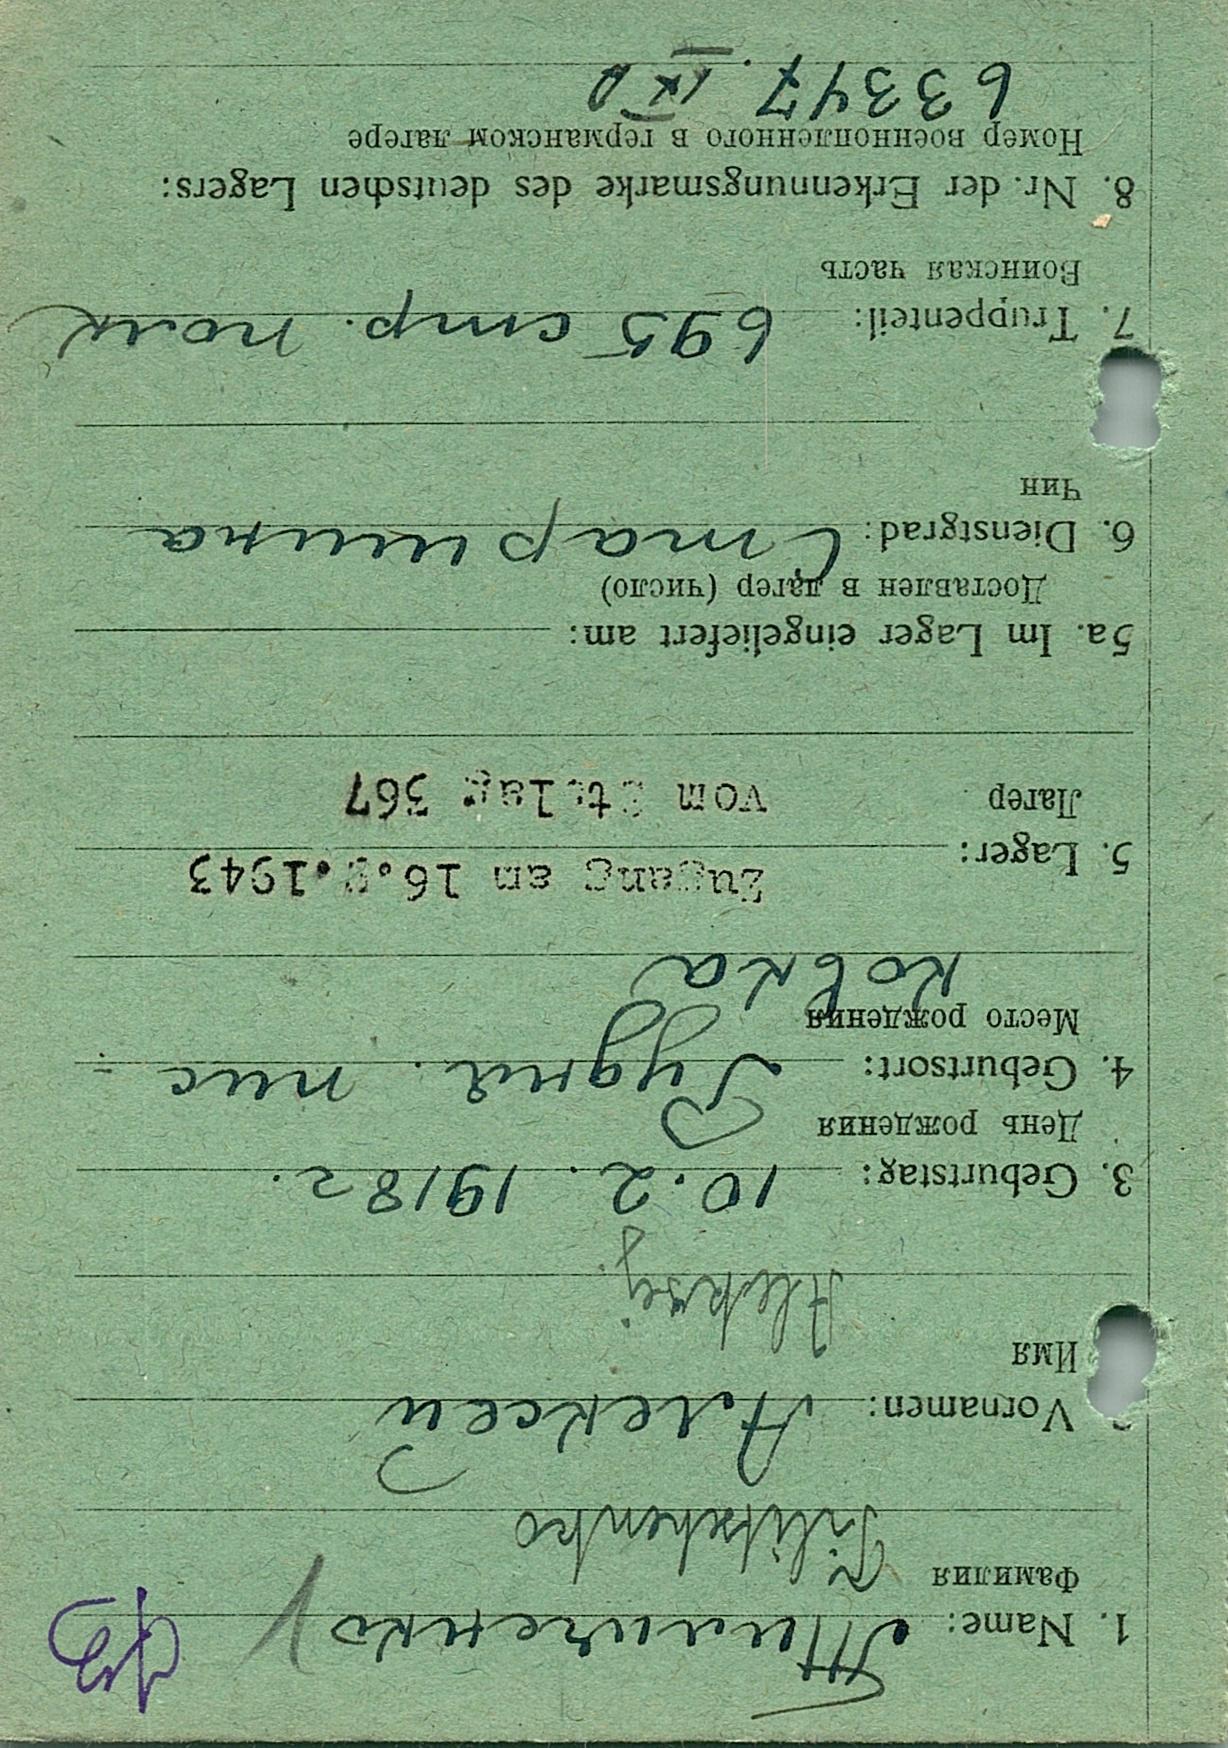 1. Name: Тиличенко
Фамилия Tilitschenko
Vornamen: Алексей
Имя
Aleksej
3. Geburtstag: 10. 2. 1918 г.
День рождения
4. Geburtsort: пис-
Место рождения
ковка
Zugang am 16. .1943
5. Lager:
Лагер vom Stalag 367
5a. Im Lager eingeliefert am:
Доставлен в лагер (число)
6. Dienstgrad: Старшина
Чин
7. Truppenteil: 695 стр. полк
Воинская часть
8. Nr. der Erkennungsmarke des deutschen Lagers:
Номер военнопленного в германском лагере
63347. IX A